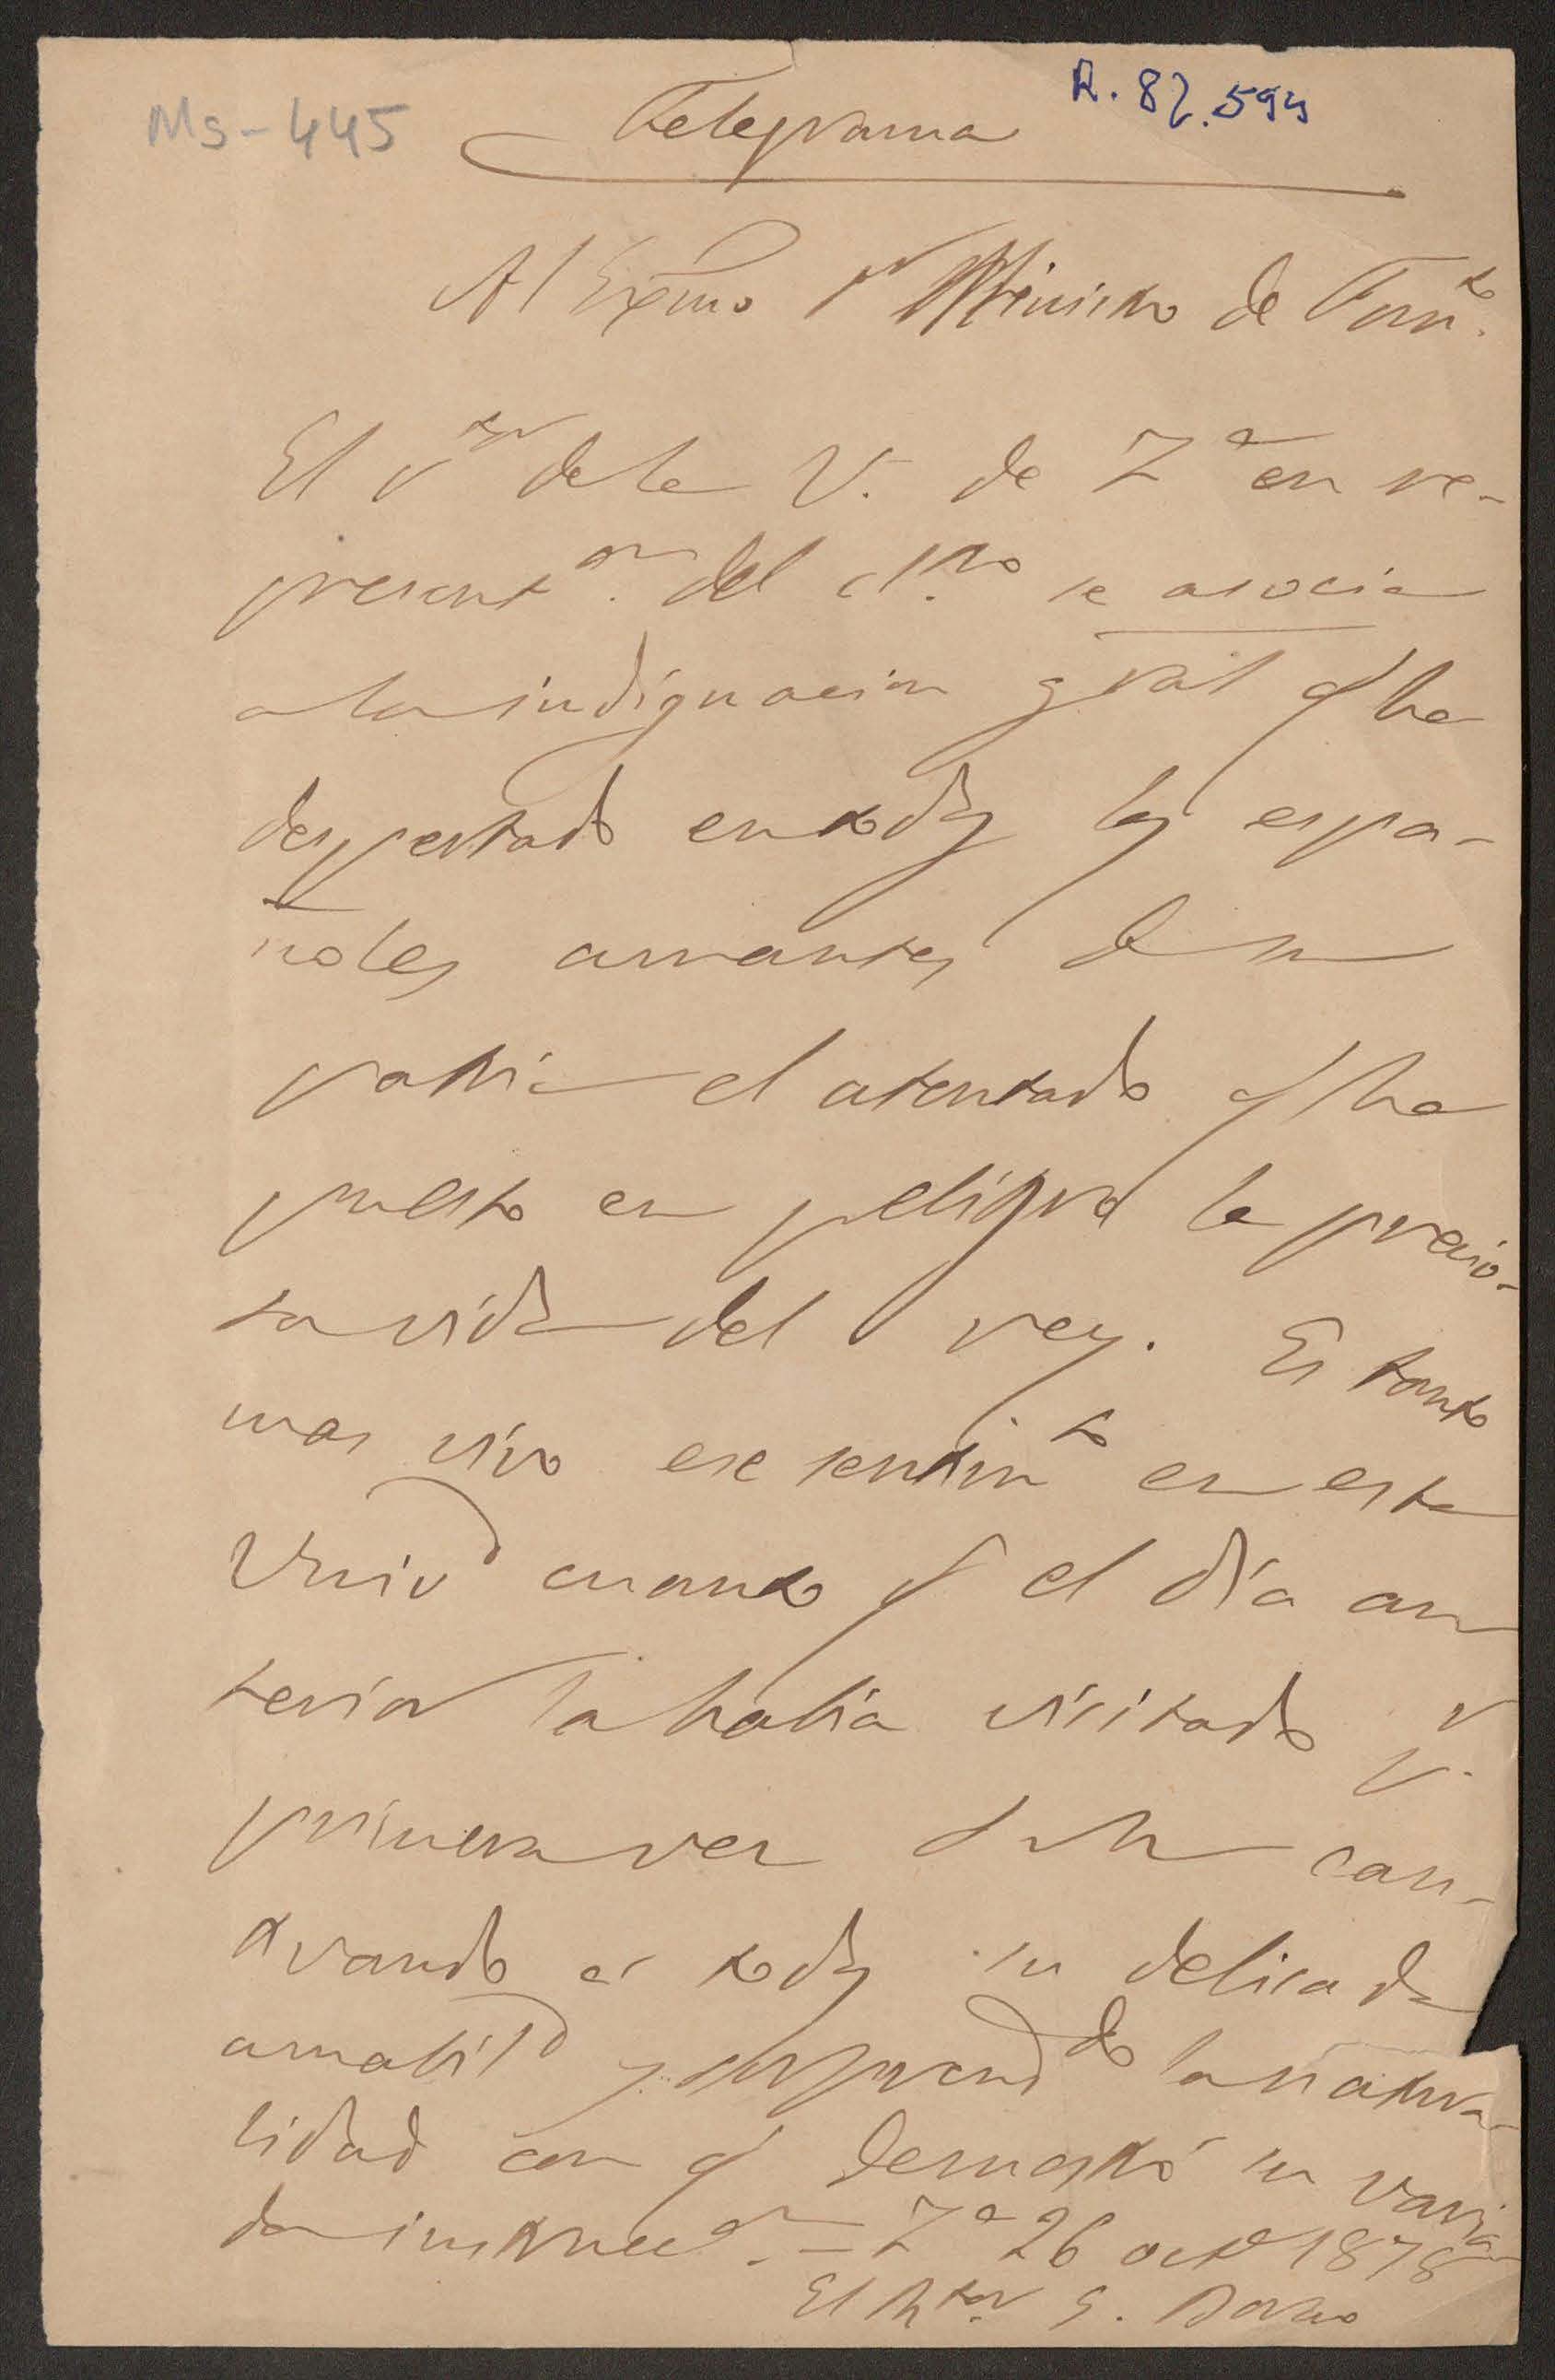 Ms-445
R. 82.594
Telegrama
Al Exmo Sr Ministro de Fomto.
El rtor de la U. de Za en re-
presenton. del clro se asocia
a la indignacion gral q ha
despertado en todos los espa-
ñoles amantes de su
patria el atentado q ha
puesto en peligro la precio-
sa vida del rey. Es tanto
mas vivo ese sentimto en esta
Univd cuanto q el día an
terior la habia visitado pr
primera vez S M
trando á todos su delicada
amabild y sorprenddo la natura-
lidad con q demostró su varia-
da instruccon. — Za 26 octe 1878
El Rtor G. Borao